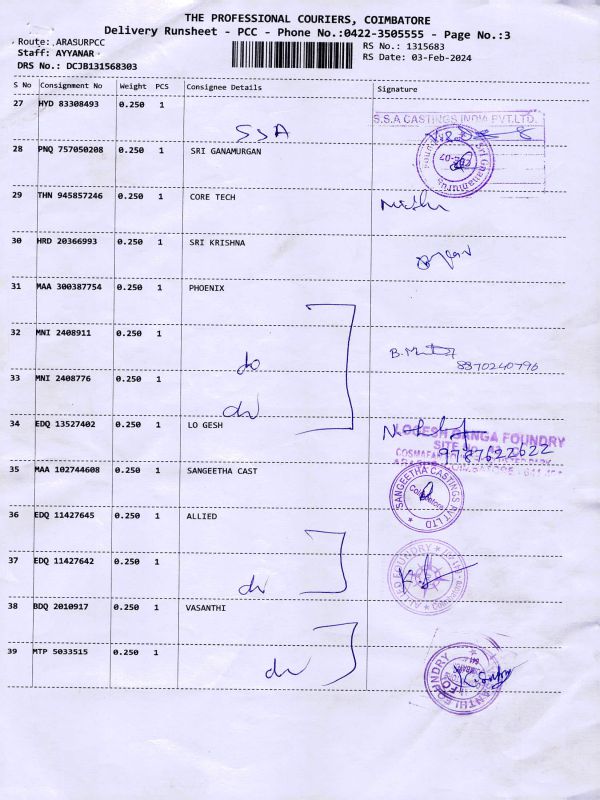 THE PROFESSIONAL COURIERS, COIMBATORE
Delivery Runsheet - PCC - Phone No.:0422-3505555 - Page No.:3
Route: ARASURPCC
Staff: AYYANAR
DRS No.: DCJB131568303
RS No.: 1315683
RS Date: 03-Feb-2024
S No Consignment No Weight PCS Consignee Details Signature
27 HYD 83308493 0.250 1
SSA
S.S.A CASTINGS INDIA PVT.LTD.
28 PNQ 757050208 0.250 1 SRI GANAMURGAN
29 THN 945857246 0.250 1 CORE TECH
30 HRD 20366993 0.250 1 SRI KRISHNA
31 MAA 300387754 0.250 1 PHOENIX
32 MNI 2408911 0.250 1 do
8870240796
33 MNI 2408776 0.250 1
34 EDQ 13527402 0.250 1 LO GESH
LOGESH GANGA FOUNDRY
9787622622
35 MAA 102744608 0.250 1 SANGEETHA CAST
SANGEETHA CASTINGS PVT LTD
Coimbatore
36 EDQ 11427645 0.250 1 ALLIED
37 EDQ 11427642 0.250 1
ALLIED FOUNDRY
38 BDQ 2010917 0.250 1 VASANTHI
39 MTP 5033515 0.250 1